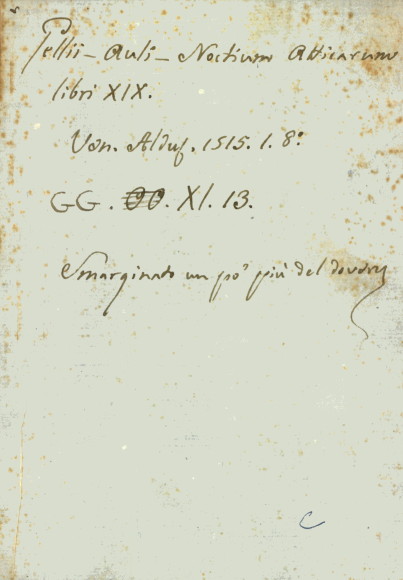 Gellii - Auli - Noctium Atticarum
libri XIX.
Ven. Aldus. 1515. 1. 8.°
GG. XI. 13.
Smarginato un po' più del dovere
C